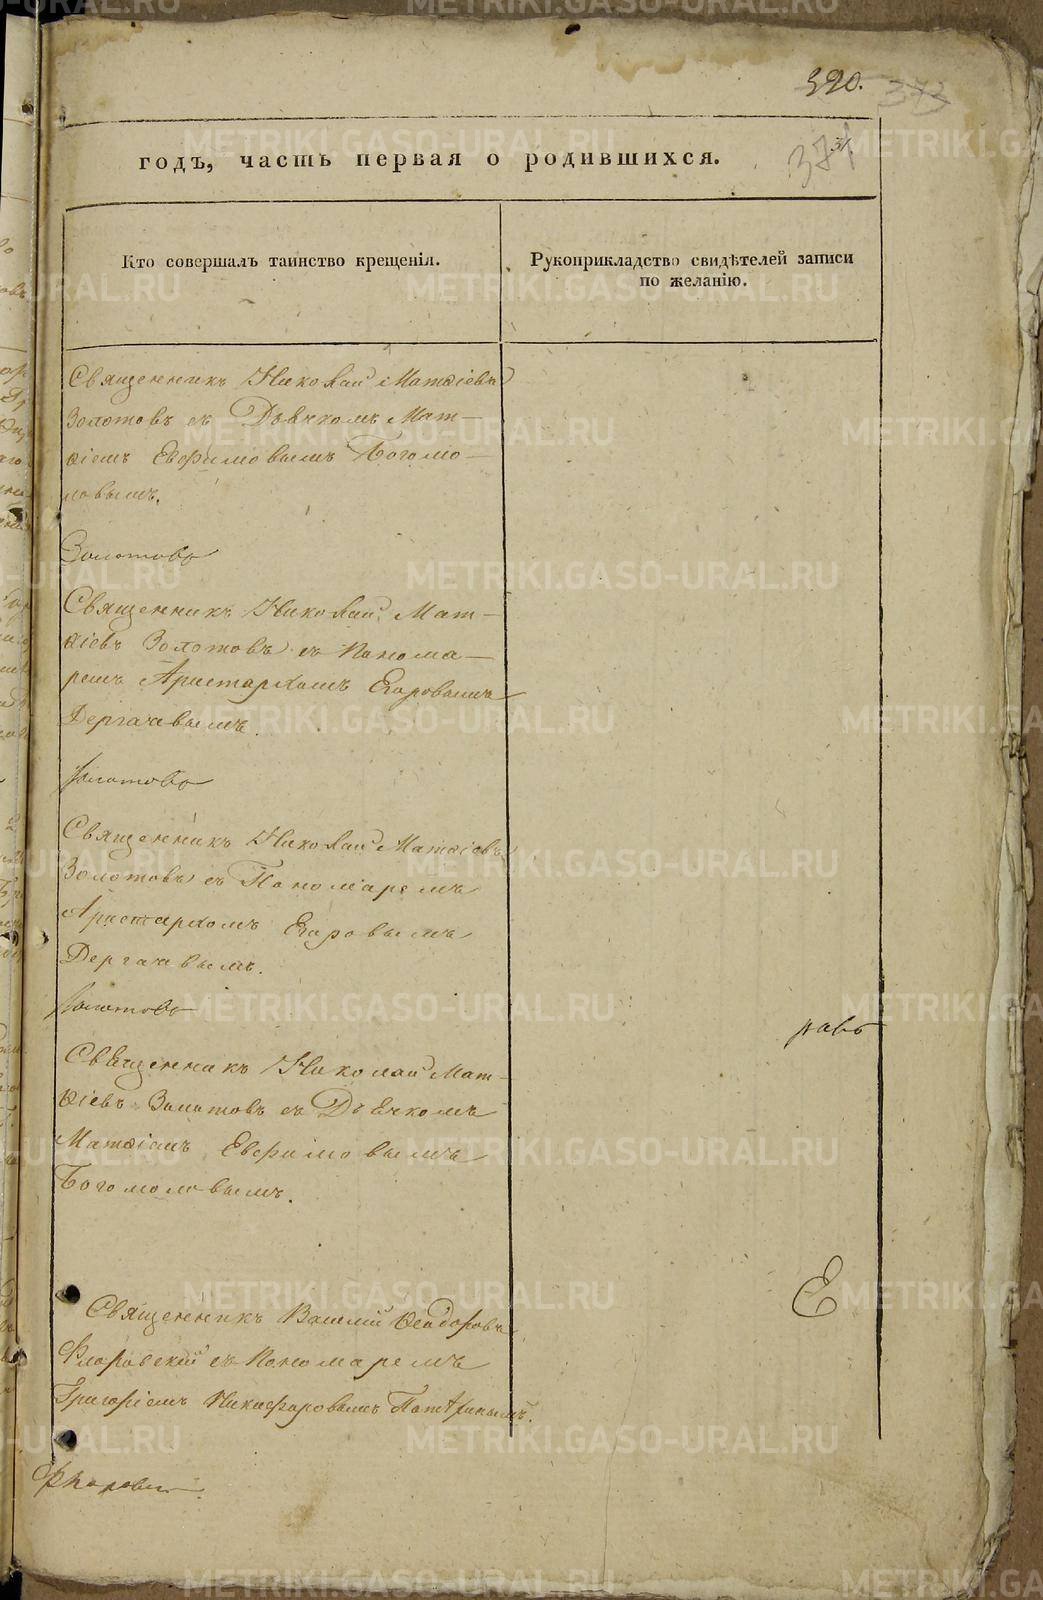 390. 373
371
годъ, часть первая о родившихся.
Кто совершалъ таинство крещенія.
Рукоприкладство свидѣтелей записи
по желанію.
Священникъ Николай Матѳіевъ
Золотовъ съ Дьячкомъ Мат-
ѳіемъ Евфимовымъ Богомо-
ловымъ.
Золотовъ
Священникъ Николай Мат-
ѳіевъ Золотовъ съ Понома-
ремъ Аристархомъ Егоровымъ
Дергачевымъ.
Золотовъ
Священникъ Николай Матѳіевъ
Золотовъ съ Пономаремъ
Аристархомъ Егоровымъ
Дергачевымъ.
Золотовъ
равъ
Священникъ Николай Мат-
ѳіевъ Золотовъ съ Дьячкомъ
Матѳіемъ Евфимовымъ
Богомоловымъ.
Е
Священникъ Василій Ѳеодоровъ
Флоровскій съ Пономаремъ
Григоріемъ Никифоровымъ
METRIKI.GASO-URAL.RU